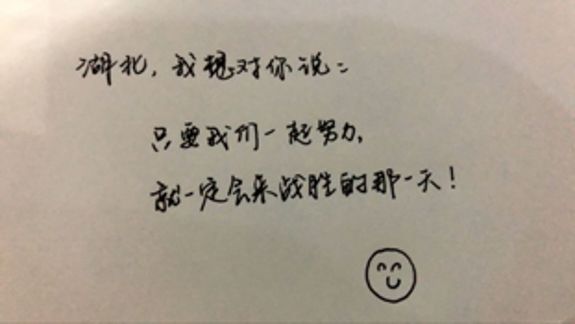 湖北，我想对你说：
只要我们一起努力，
就一定会来战胜的那一天！